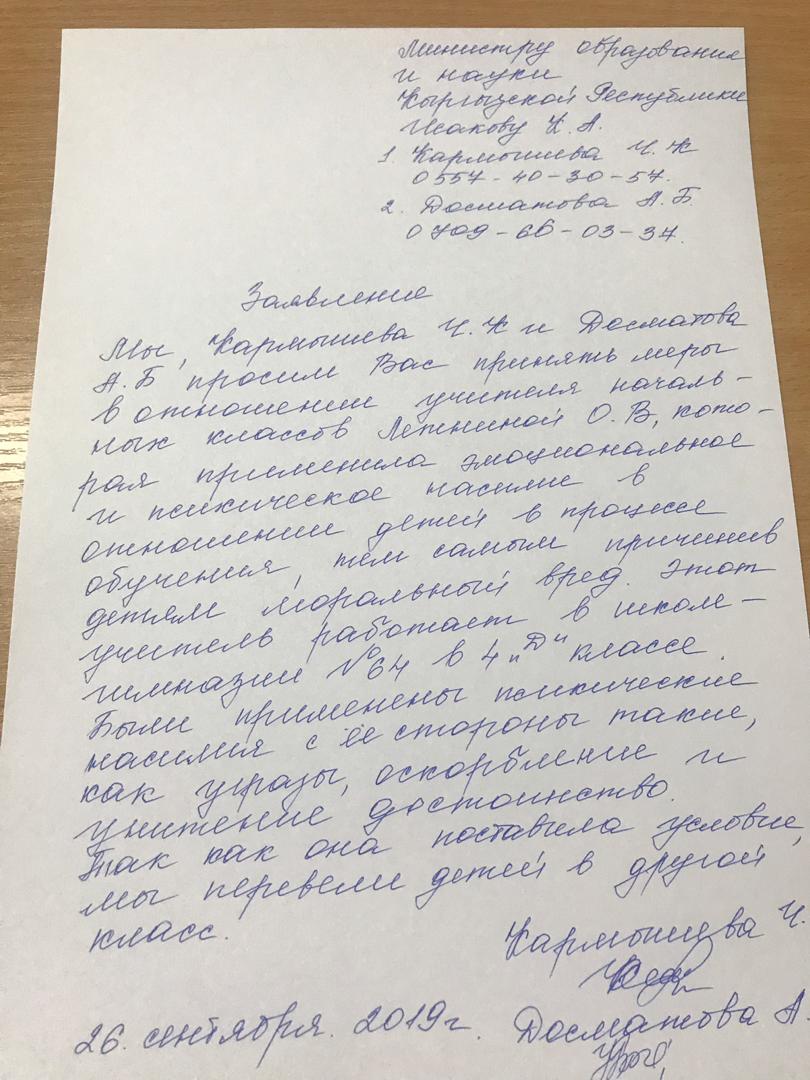 Министру образования
и науки
Кыргызской Республики
Исакову К. А.
1. Кармышева Ч. К
0557-40-30-57.
2. Досматова А. Б.
0709-66-03-37.
Заявление
Мы, Кармышева Ч. К и Досматова
А. Б просим Вас принять меры
в отношении учителя началь-
ных классов Летниной О. В, кото-
рая применила эмоциональное
и психическое насилие в
отношении детей в процессе
обучения, тем самым причинив
детям моральный вред. Этот
учитель работает в школе-
гимназии №64 в 4 „Д" классе.
Были применены психические
насилия с её стороны такие,
как угрозы, оскорбление и
унитение достоинство.
Так как она поставила условие,
мы перевели детей в другой
класс.
Кармышева Ч.
26. сентября. 2019г. Досматова А.